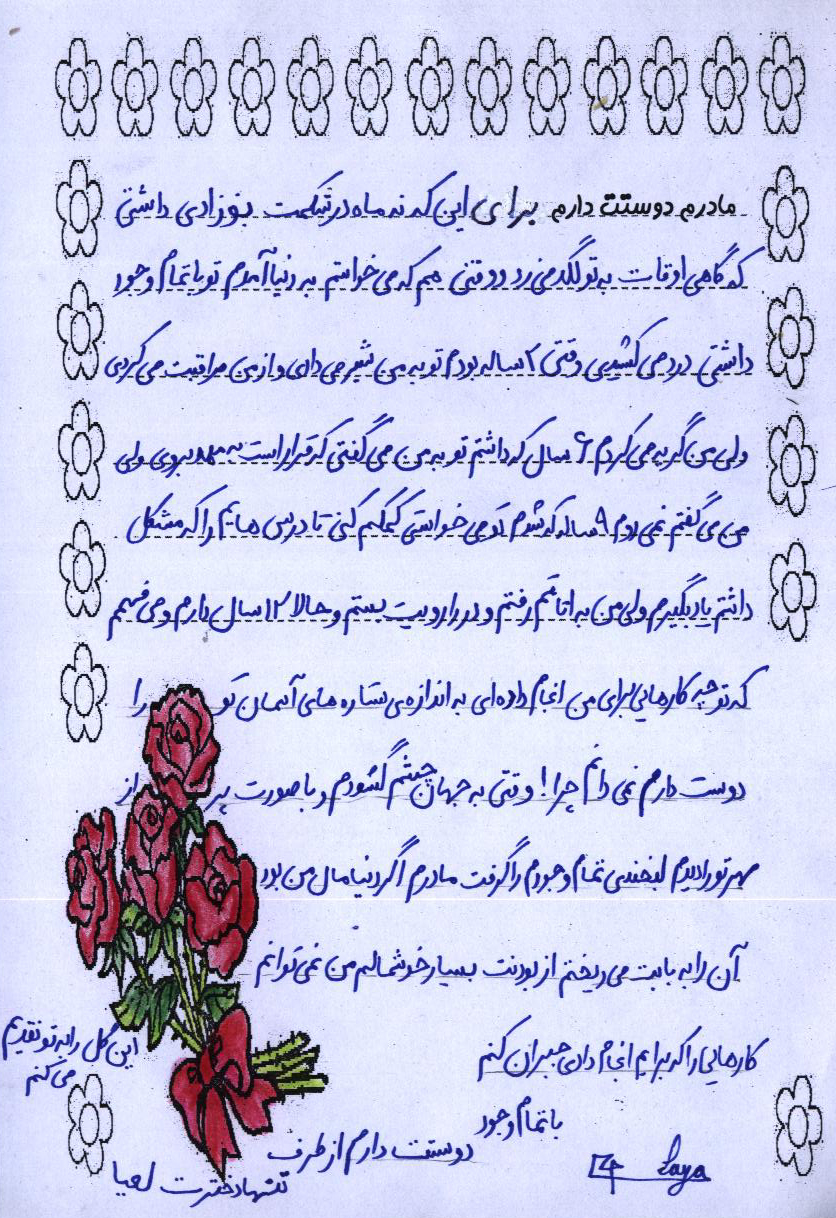 مادرم دوستت دارم برای این که نه ماه در شکمت نوزادی داشتی
که گاهی اوقات به تو لگد می زد و وقتی هم که می خواستم به دنیا آمدم تو با تمام وجود
داشتی درد می کشیدی وقتی ۲ ساله بودم تو به من شیر می دادی و از من مراقبت می کردی
ولی من گریه می کردم ۶ سال که داشتم تو به من می گفتی که قرار است به مهد بروی ولی
من می گفتم نمی روم ۹ ساله که شدم تو می خواستی کمکم کنی تا درس هایم را که مشکل
داشتم یاد بگیرم ولی من به اتاقم رفتم و در را رویت بستم و حالا ۱۲ سال دارم و می فهمم
که تو چه کارهایی برای من انجام داده ای به اندازه ی ستاره های آسمان تو را
دوست دارم نمی دانم چرا! وقتی به جهان چشم گشودم و با صورت پر از
مهر تو را دیدم لبخندی تمام وجودم را گرفت مادرم اگر دنیا مال من بود
آن را به پایت می ریختم از بودنت بسیار خوشحالم من نمی توانم
کارهایی را که برایم انجام دادی جبران کنم
با تمام وجود
دوستت دارم از طرف
تنها دخترت لعیا
این گل را به تو تقدیم
می کنم
Laya